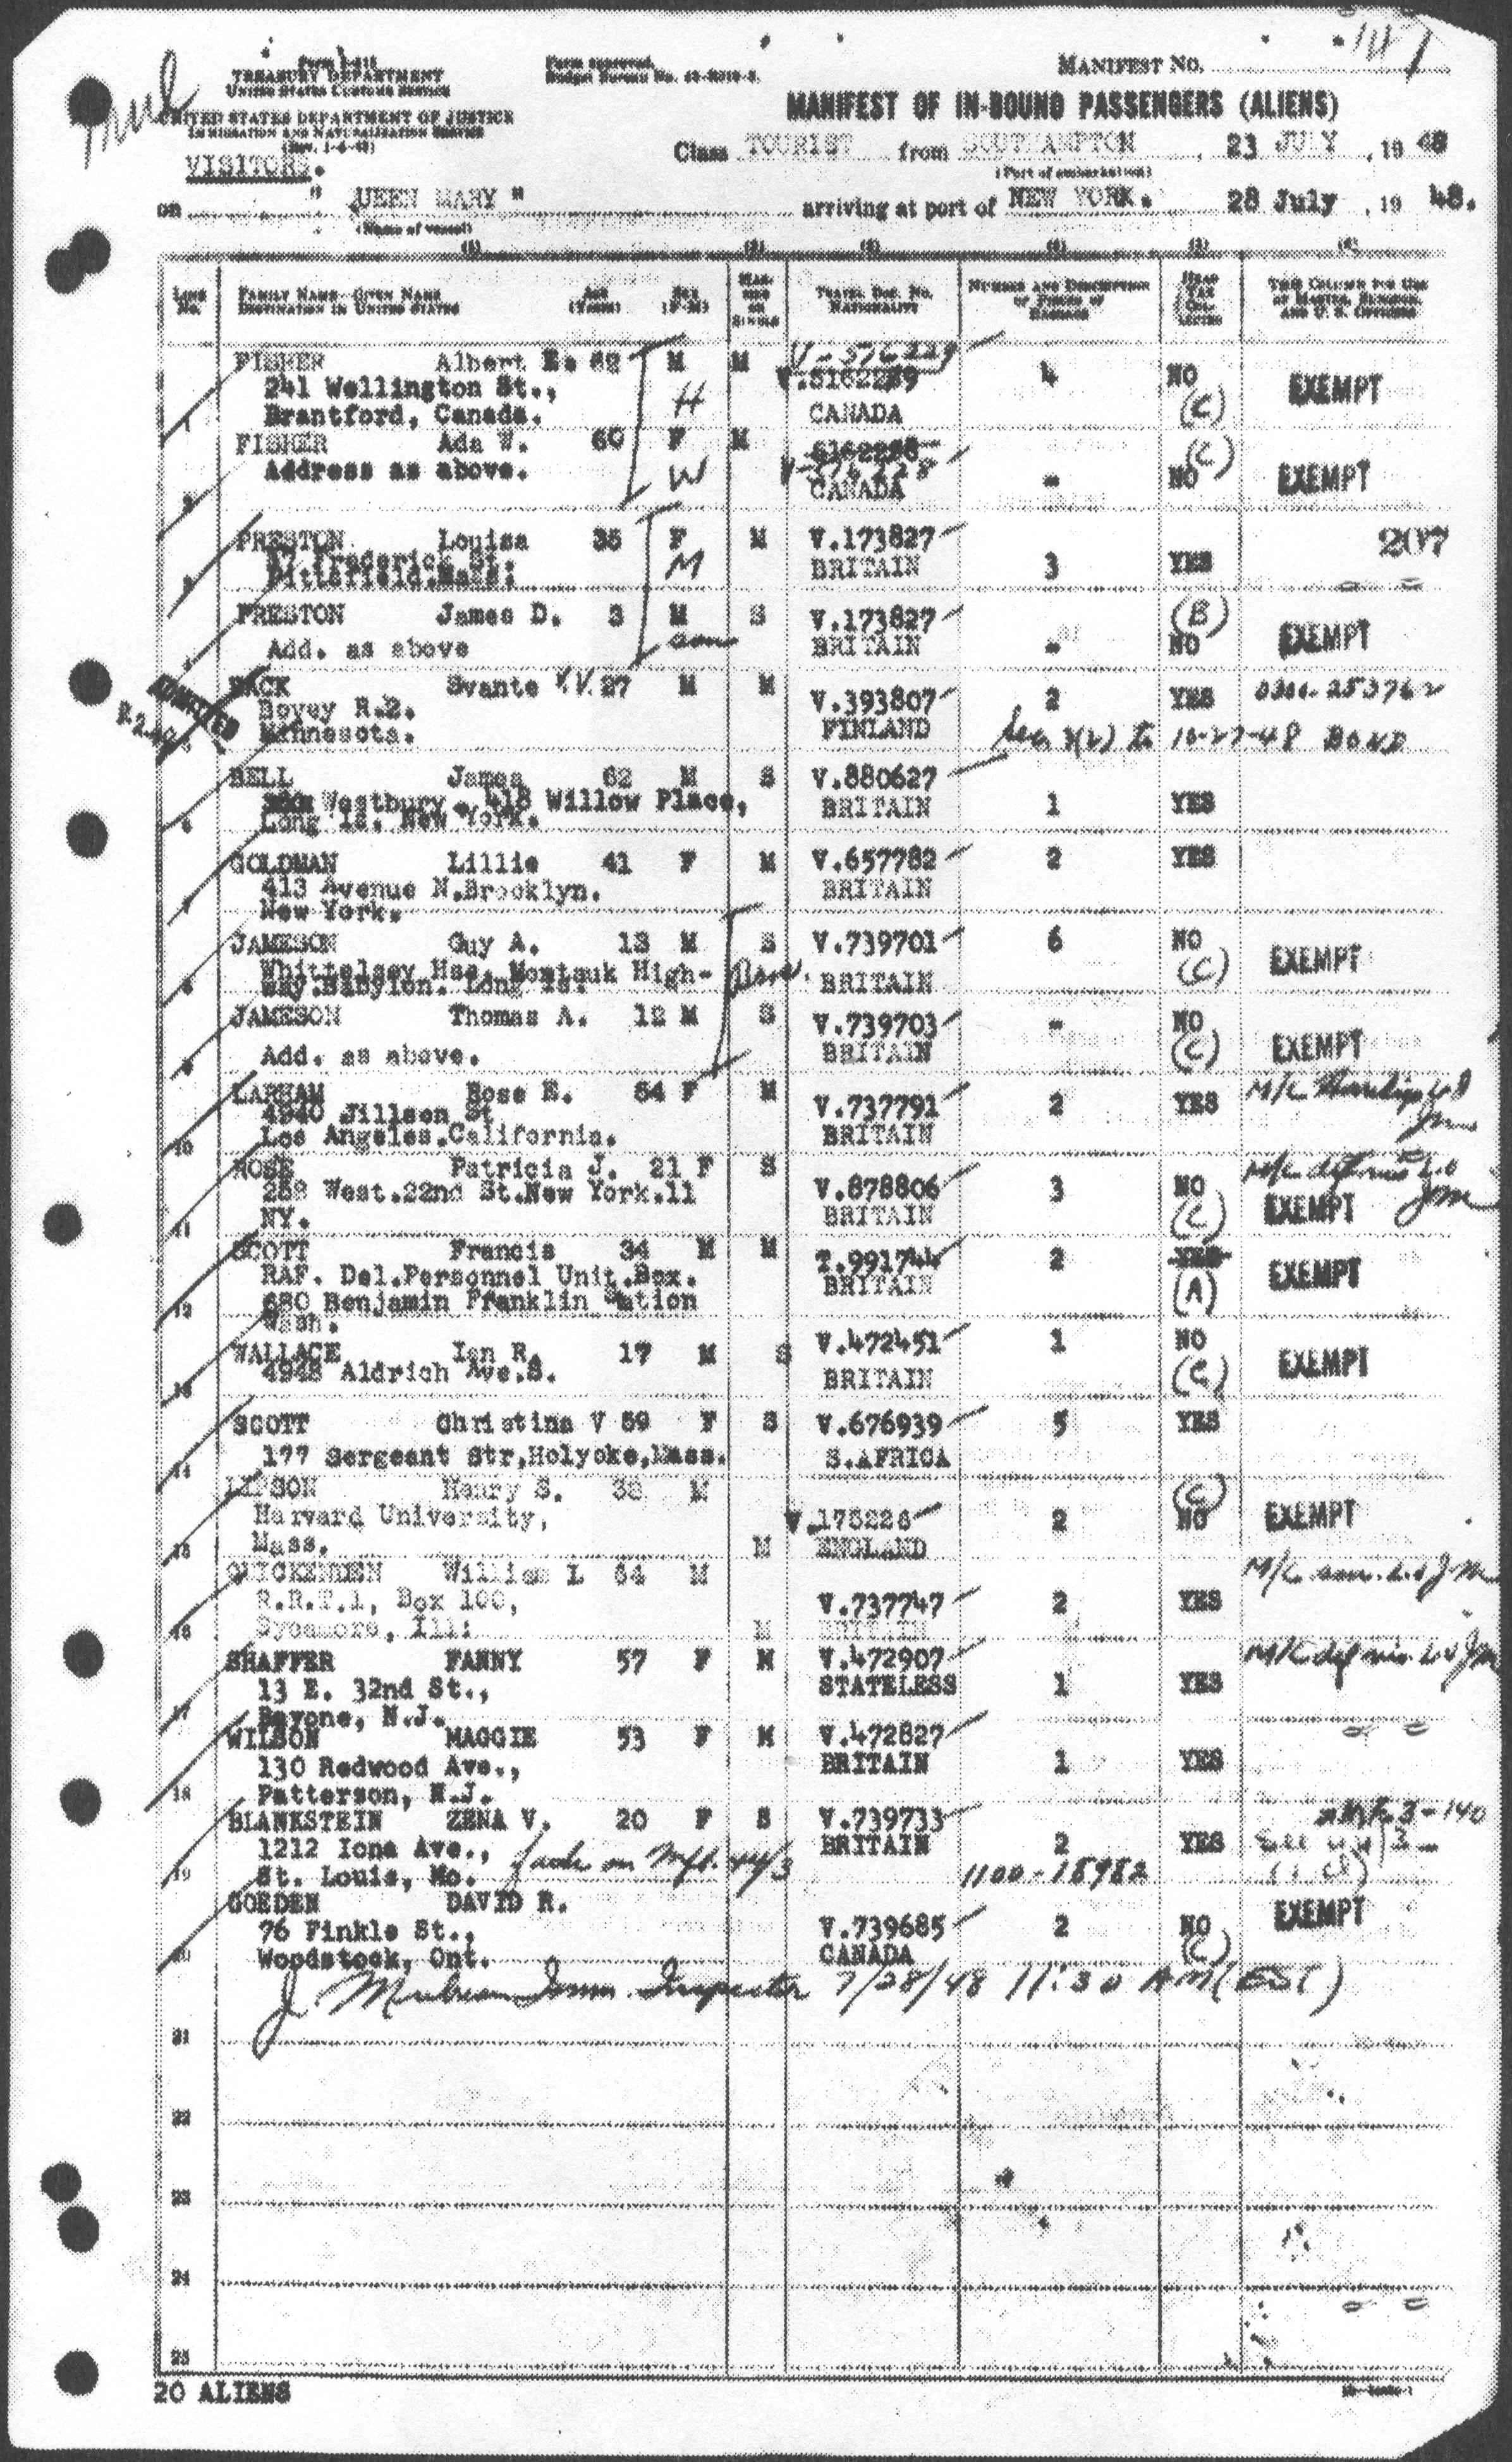 Form I-415
TREASURY DEPARTMENT
UNITED STATES CUSTOMS SERVICE
UNITED STATES DEPARTMENT OF JUSTICE
IMMIGRATION AND NATURALIZATION SERVICE
Form approved.
Budget Bureau No.
MANIFEST NO.
MANIFEST OF IN-BOUND PASSENGERS (ALIENS)
VISITORS.
Class TOURIST from SOUTHAMPTON, 23 JULY, 1948
(Port of embarkation)
on " UEEN MARY " arriving at port of NEW YORK. 28 July, 1948.
(Name of vessel)
(1) (2) (3) (4) (5) (6)
LINE NO. FAMILY NAME—GIVEN NAME DESTINATION IN UNITED STATES AGE (YEARS) SEX (F-M) MARRIED OR SINGLE TRAVEL DOC. NO. NATIONALITY NUMBER AND DESCRIPTION OF PIECES OF BAGGAGE HEAD TAX COLLECTED THIS COLUMN FOR USE OF MASTER, SURGEON, AND U. S. OFFICERS
FISHER Albert E. 62 M M V-376229
241 Wellington St., V.5162289 4 NO EXEMPT
Brantford, Canada. H CANADA (C)
1
FISHER Ada W. 60 F M 5162288 (C)
Address as above. W V-376228 - NO EXEMPT
CANADA
2
PRESTON Louisa 35 F M V.173827 207
Frederick St. M BRITAIN 3 YES
Pittsfield.Mass.
3
PRESTON James D. 3 M S V.173827 (B)
Add. as above son BRITAIN - NO EXEMPT
4
ADMITTED
BACK Svante V. 27 M M V.393807 2 YES 0300-253762
Bovey R.2. FINLAND Sec 3(2) to 10-27-48 BOND
Minnesota.
5
BELL James 62 M S V.880627
Westbury. 418 Willow Place, BRITAIN 1 YES
Long Is. New York.
6
GOLDMAN Lillie 41 F M V.657782 2 YES
413 Avenue N.Brooklyn. BRITAIN
New York.
7
JAMESON Guy A. 13 M S V.739701 6 NO EXEMPT
Whittelsey Hse. Montauk High- BRITAIN (C)
way.Babylon. Long Is.
8
JAMESON Thomas A. 12 M S V.739703 - NO EXEMPT
Add. as above. BRITAIN (C)
9
LARHAM Rose E. 54 F M V.737791 2 YES M/C
4940 Jillson St BRITAIN
Los Angeles.California.
10
ROSE Patricia J. 21 F S V.878806 3 NO M/C
258 West.22nd St.New York.11 BRITAIN (C) EXEMPT
NY.
11
SCOTT Francis 34 M M T.991744 2 YES EXEMPT
RAF. Del.Personnel Unit.Box. BRITAIN (A)
680 Benjamin Franklin Station
Wash.
12
WALLACE Ian R. 17 M S V.472451 1 NO EXEMPT
4948 Aldrich Ave.S. BRITAIN (C)
13
SCOTT Christina V 59 F S V.676939 5 YES
177 Sergeant Str,Holyoke,Mass. S.AFRICA
14
LIPSON Henry S. 38 M (C)
Harvard University, V.175226 2 NO EXEMPT
Mass. M ENGLAND
15
QUICKENDEN William L 64 M M/C
R.R.T.1, Box 100, V.737747 2 YES
Sycamore, Ill: M BRITAIN
16
SHAFFER FANNY 57 F M V.472907 M/C
13 E. 32nd St., STATELESS 1 YES
Bayone, N.J.
17
WILSON MAGGIE 53 F M V.472827
130 Redwood Ave., BRITAIN 1 YES
Patterson, N.J.
18
BLANKSTEIN ZENA V. 20 F S V.739733
1212 Iona Ave., BRITAIN 2 YES
St. Louis, Mo. on Mft. 44/3
19
GOEDEN DAVID R. EXEMPT
76 Finkle St., V.739685 2 NO
Woodstock, Ont. CANADA (C)
20
Inspector 7/28/48 11:30 AM (EST)
21
22
23
24
25
20 ALIENS